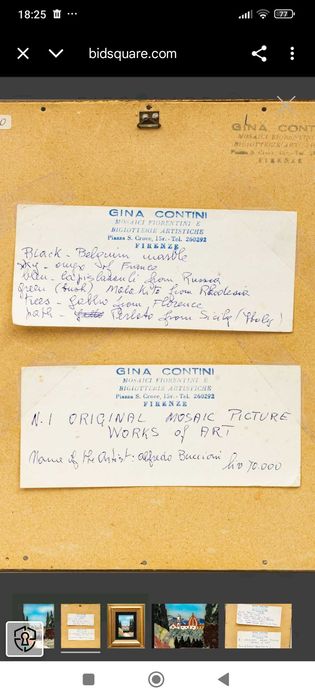 18:25
77
bidsquare.com
GINA CONT
MOSAICI FIORENTINI
BIGIOTTERIE ART
FIRENZE
GINA CONTINI
MOSAICI FIORENTINI E
BIGIOTTERIE ARTISTICHE
Piazza S. Croce, 15r. - Tel. 260292
FIRENZE
Black - Belgium marble
sky - onyx France
from Russia
green (bush) Malakite from Rhodesia
Trees - gabbro from Florence
path - Perlato from Sicily (Italy)
GINA CONTINI
MOSAICI FIORENTINI E
BIGIOTTERIE ARTISTICHE
Piazza S. Croce, 15r. - Tel. 260292
FIRENZE
N. 1 ORIGINAL MOSAIC PICTURE
WORKS of ART
Name of the Artist: Alfredo
70.000